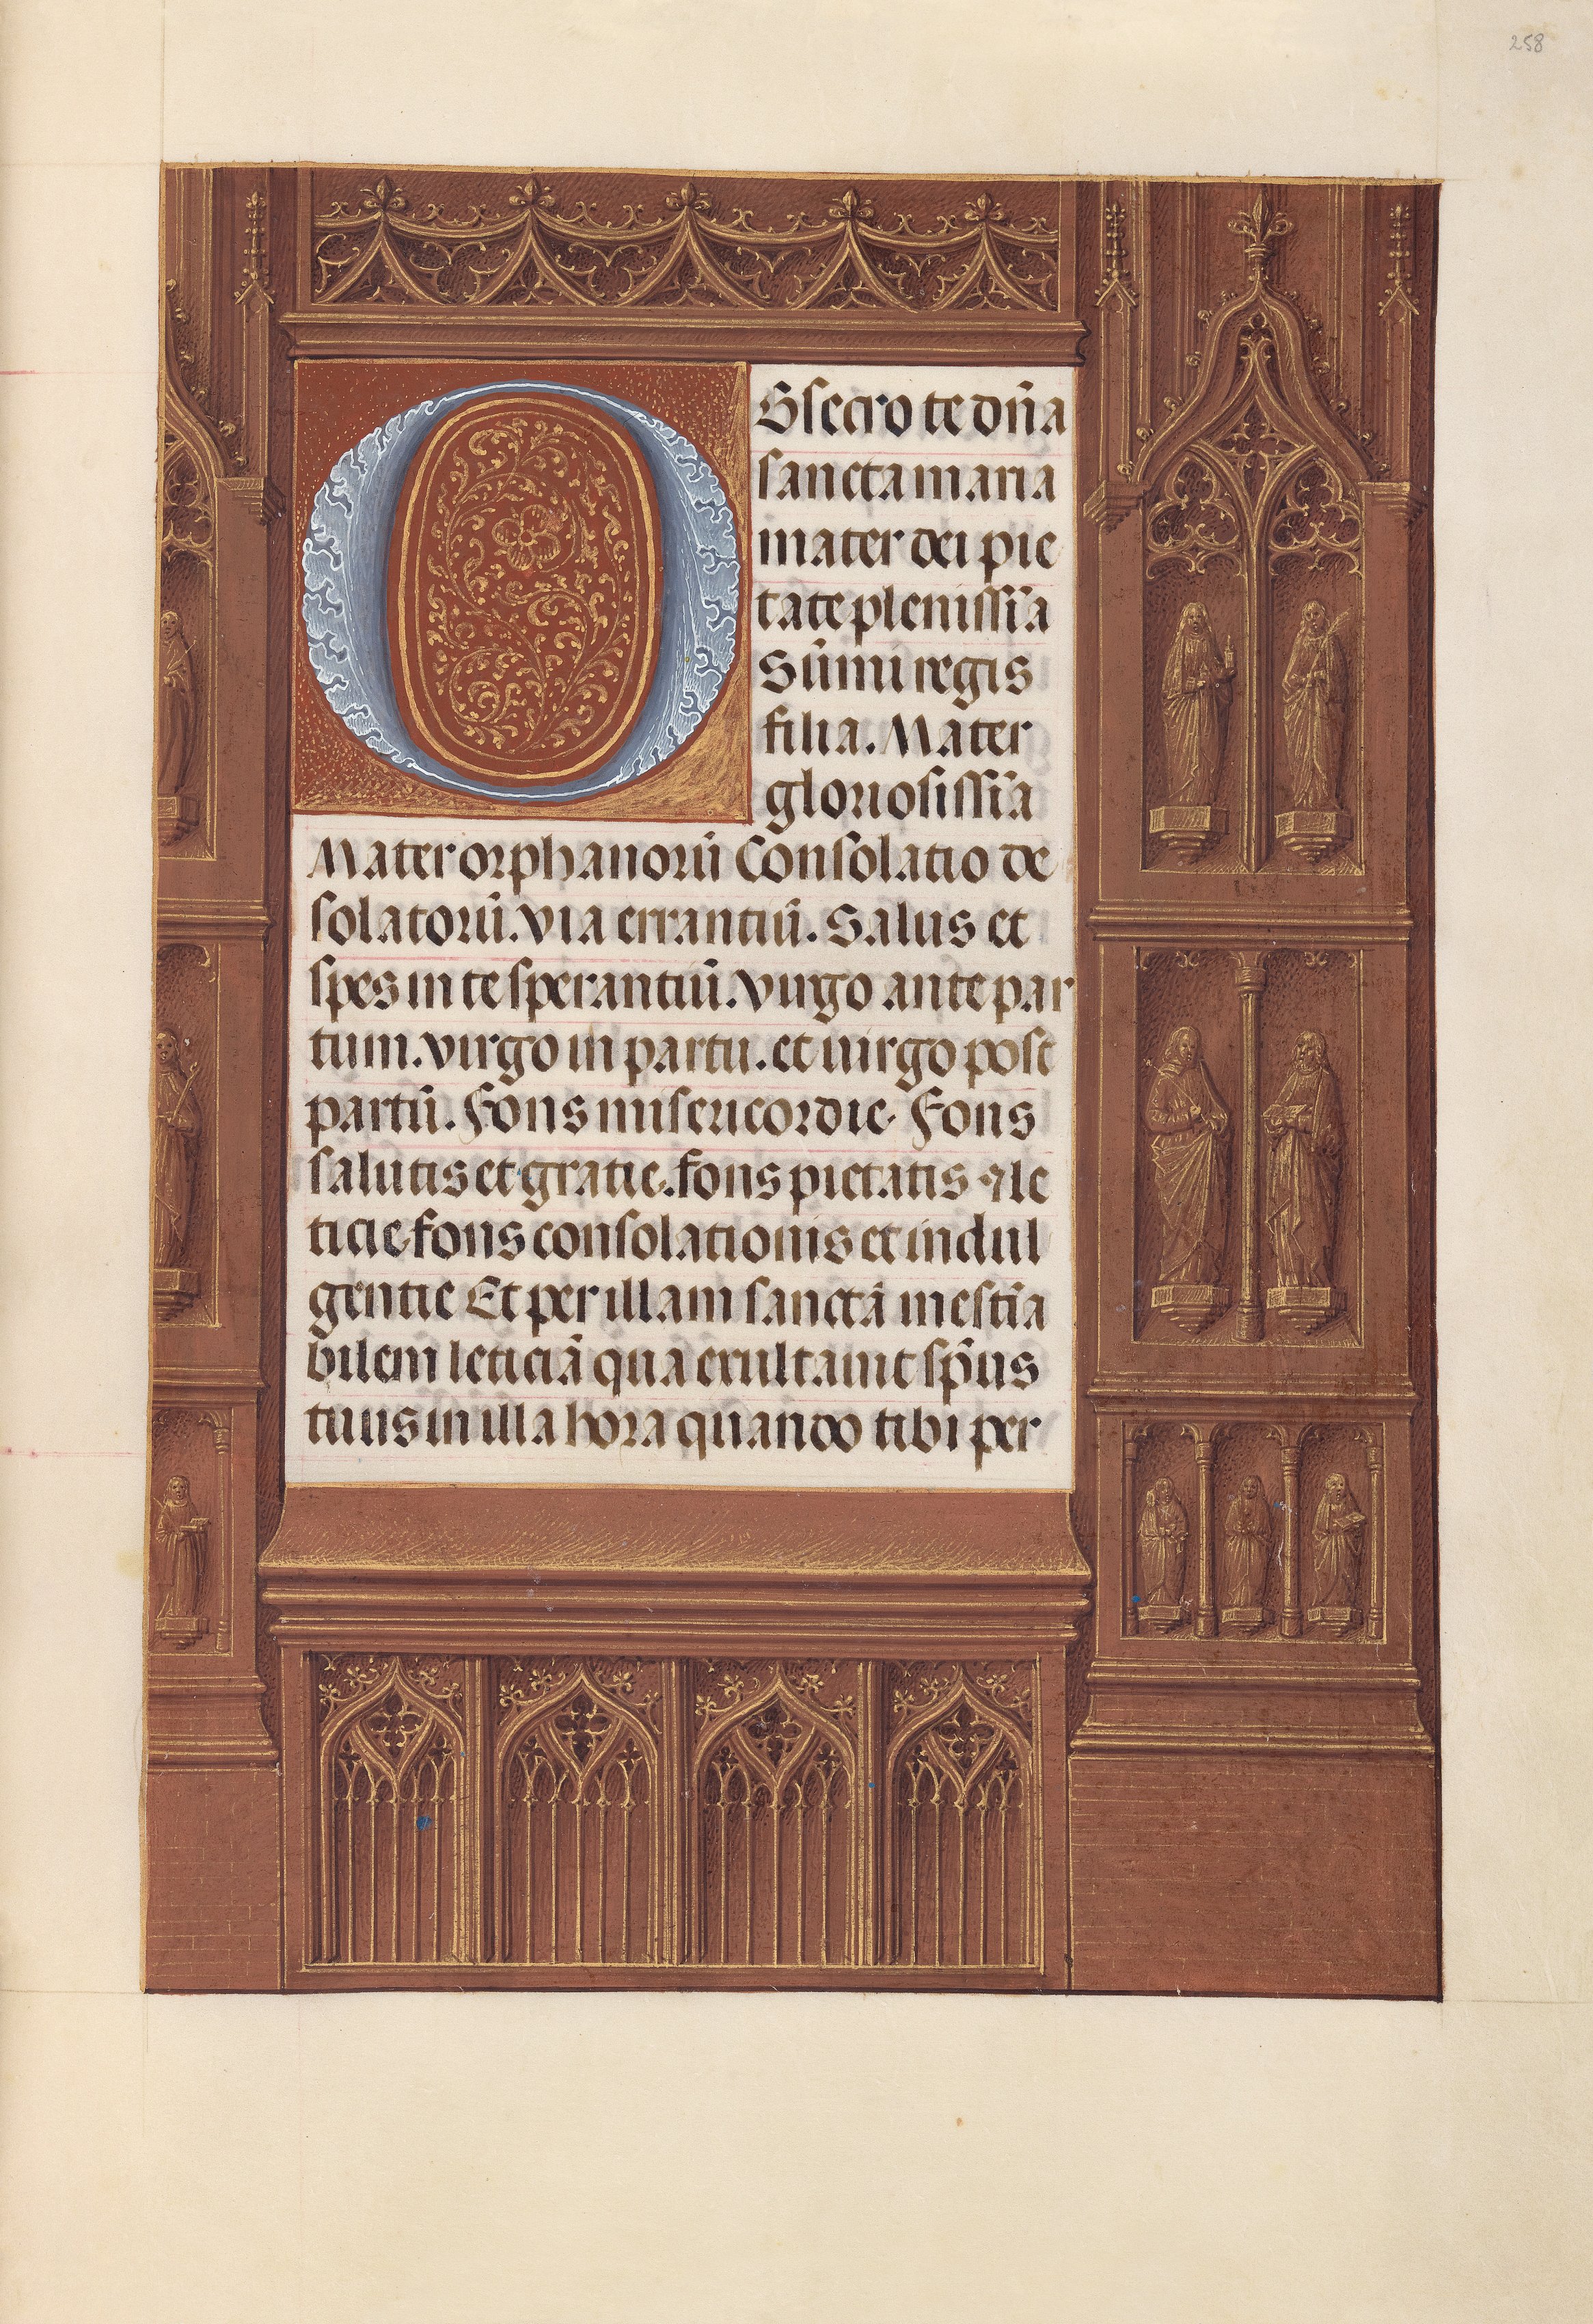 258
OBsecro te dn̄a
sancta maria
mater dei pie
tate plenissīa
Sūmi regis
filia. Mater
gloriosissīa
Mater orphanorū Consolatio de
solatorū. via errantiū. Salus et
spes in te sperantiū. virgo ante par
tum. virgo in partu. et uirgo post
partū. Fons misericordie. Fons
salutis et gratie. fons pietatis ⁊ le
ticie fons consolationis et indul
gentie Et per illam sanctā inestīa
bilem leticiā qua exultauit sp̄us
tuus in illa hora quando tibi per